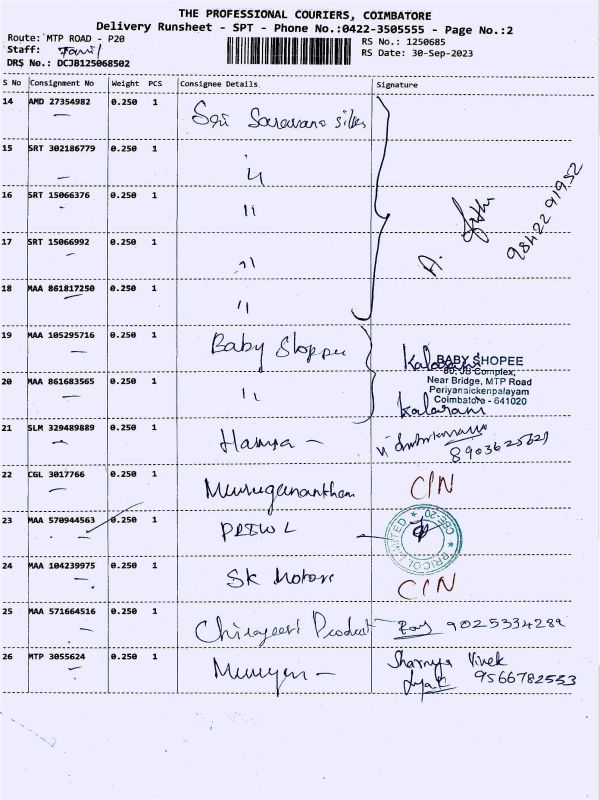 THE PROFESSIONAL COURIERS, COIMBATORE
Delivery Runsheet - SPT - Phone No.:0422-3505555 - Page No.:2
Route: MTP ROAD - P20
RS No.: 1250685
Staff: Tamil
RS Date: 30-Sep-2023
DRS No.: DCJB125068502
S No Consignment No Weight PCS Consignee Details Signature
14 AMD 27354982 0.250 1 Sri Saravana silks
15 SRT 302186779 0.250 1 "
16 SRT 15066376 0.250 1 "
A. 98422 91952
17 SRT 15066992 0.250 1 "
18 MAA 861817250 0.250 1 "
19 MAA 105295716 0.250 1 Baby Shoppee Kalarani
BABY SHOPEE
80, JB Complex,
Near Bridge, MTP Road
Periyanaickenpalayam
Coimbatore - 641020
20 MAA 861683565 0.250 1 " Kalarani
21 SLM 329489889 0.250 1 8903625629
22 CGL 3017766 0.250 1 Murugananthan C/N
23 MAA 570944563 0.250 1 PRICOL LIMITED ★ CBE-20 ★
24 MAA 104239975 0.250 1 SK Motors C/N
25 MAA 571664516 0.250 1 Product 9025334289
26 MTP 3055624 0.250 1 Murugan - Sharnya Vivek
9566782553